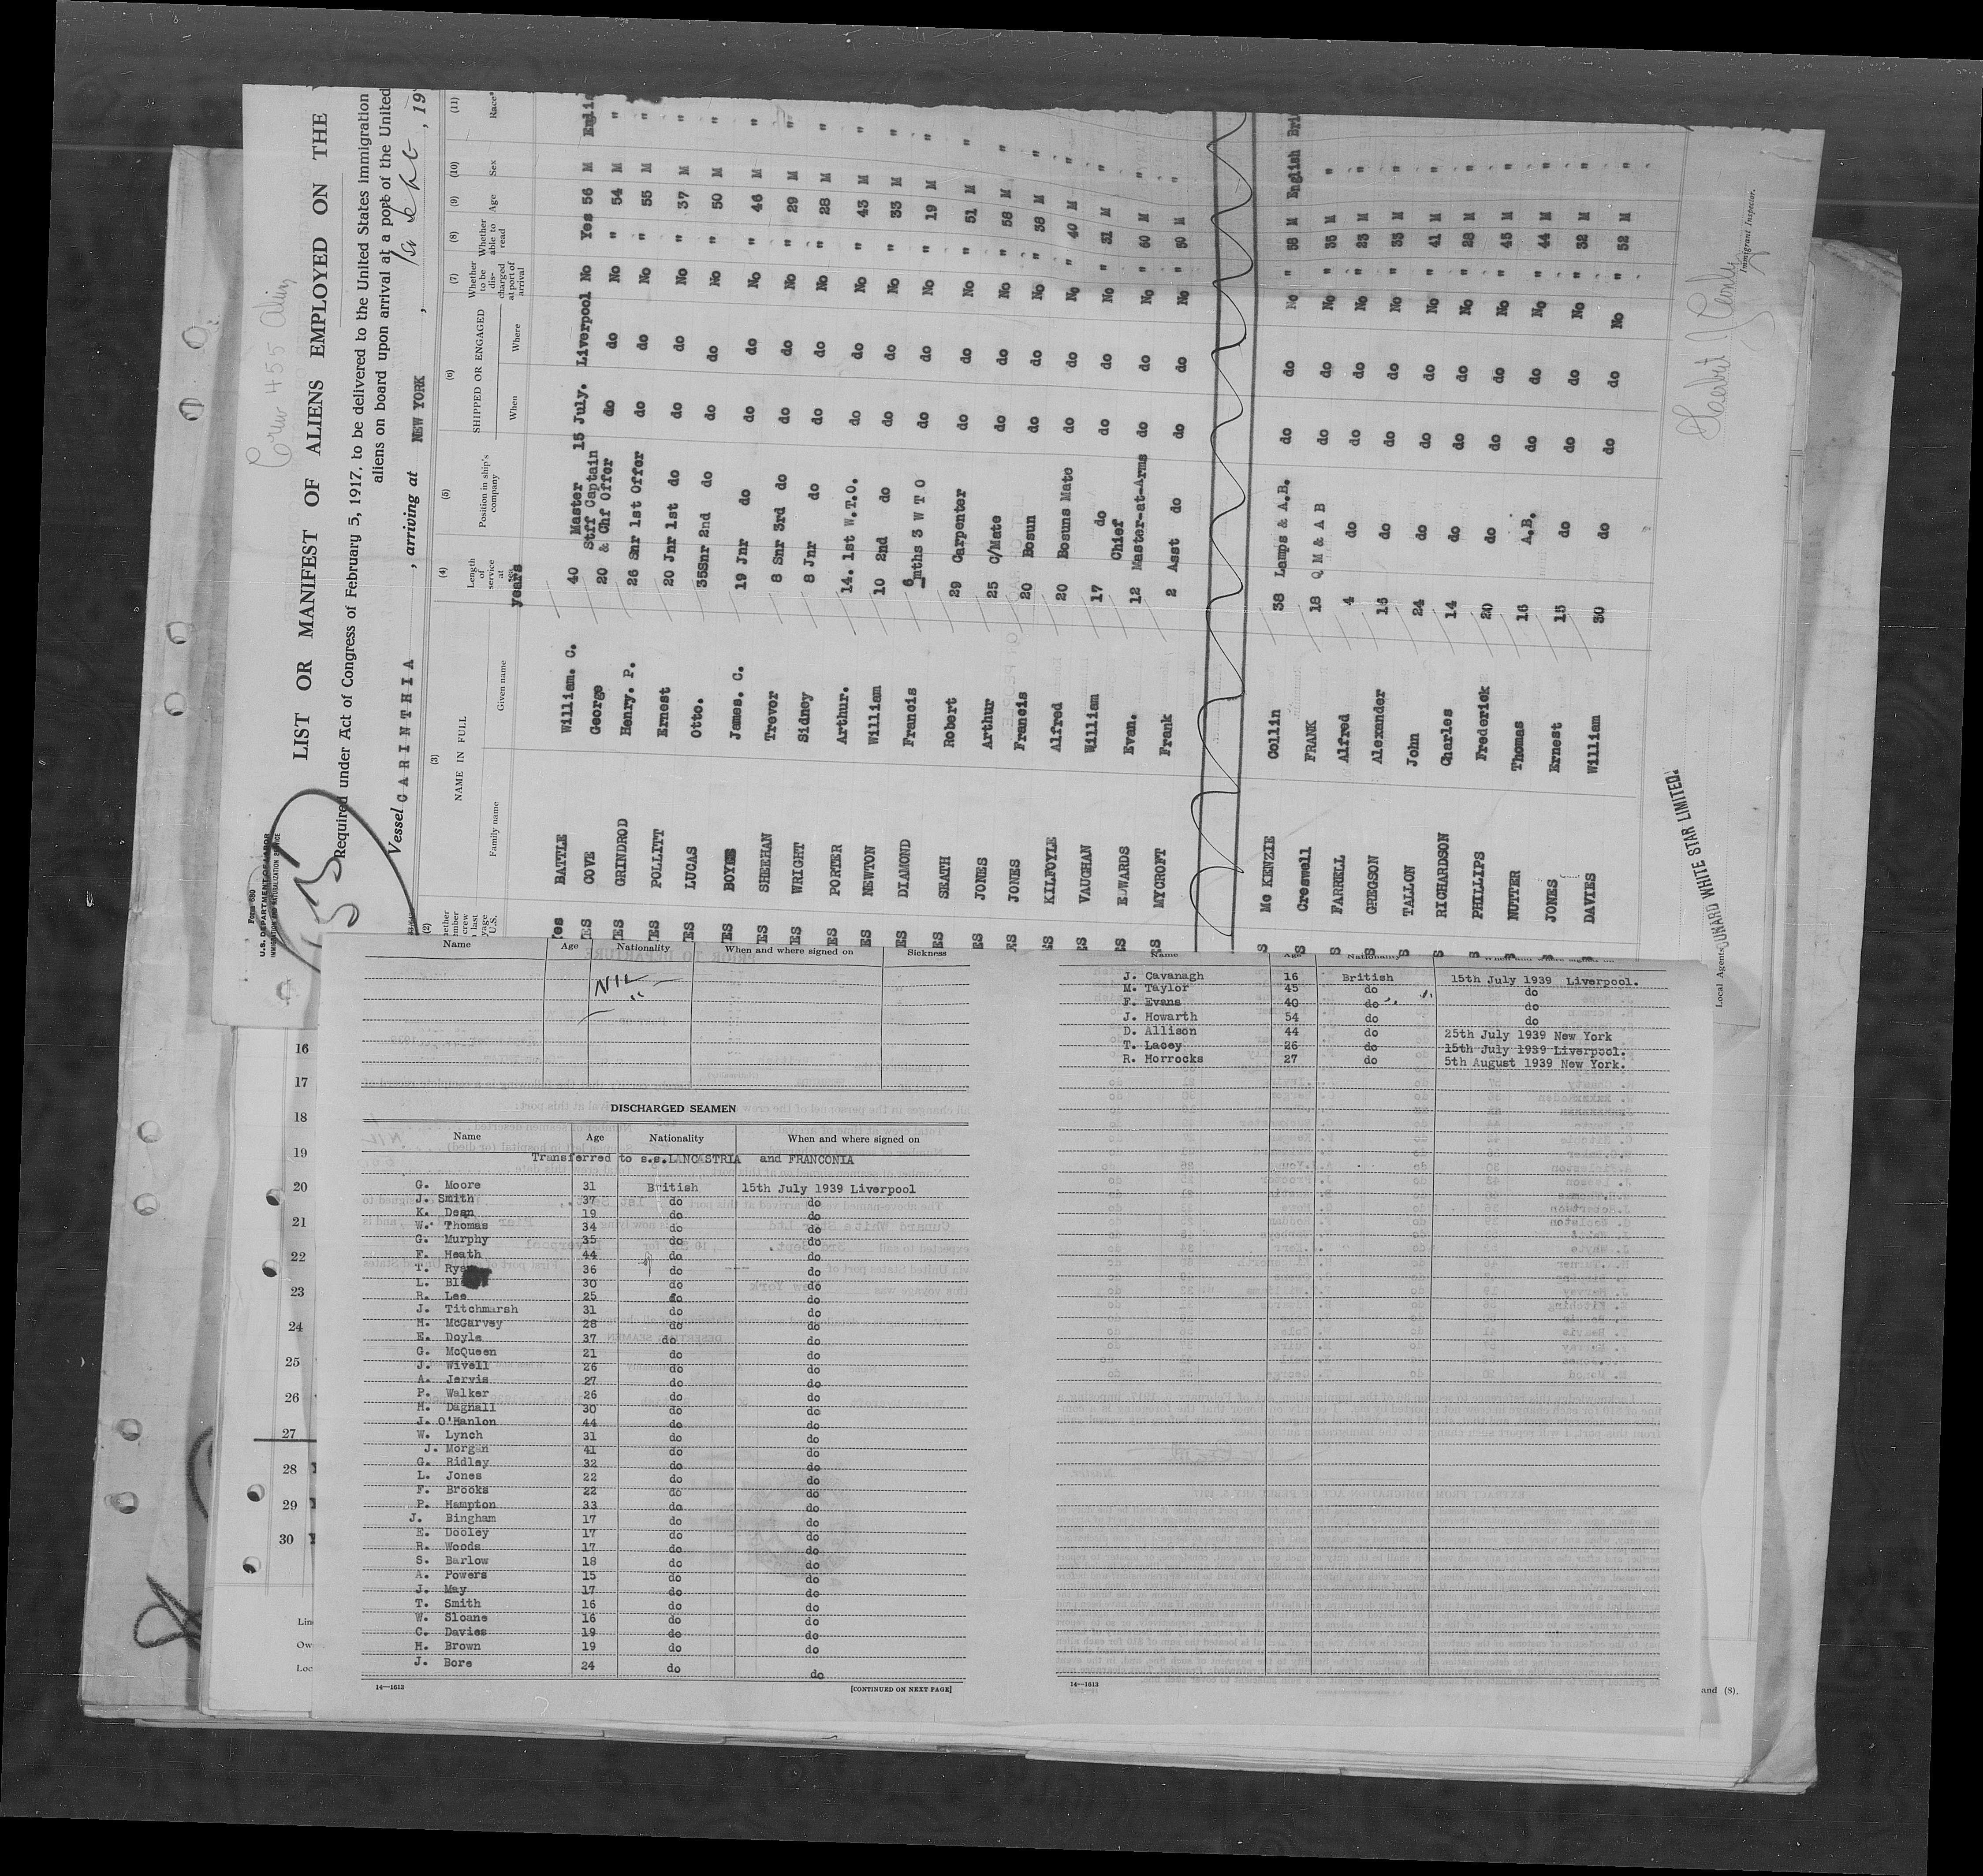 Crew 455 Alien
Form 680
U.S. DEPARTMENT OF LABOR
IMMIGRATION AND NATURALIZATION SERVICE
LIST OR MANIFEST OF ALIENS EMPLOYED ON THE
Required under Act of Congress of February 5, 1917, to be delivered to the United States immigration
aliens on board upon arrival at a port of the United
Vessel CARINTHIA , arriving at NEW YORK , 1st Sept , 19
(2) (3) (4) (5) (6) (7) (8) (9) (10) (11)
NAME IN FULL Length of service at sea Position in ship's company SHIPPED OR ENGAGED Whether to be discharged at port of arrival Whether able to read Age Sex Race*
Family name Given name years When Where
Yes BATTLE William. C. 40 Master 15 July. Liverpool No Yes 56 M
COVE George 20 Stff Captain & Chf Offer do do No " 54 M "
GRINDROD Henry. P. 26 Snr 1st Offer do do No " 55 M "
POLLITT Ernest 20 Jnr 1st do do do No " 37 M "
LUCAS Otto. 35 Snr 2nd do do do No " 50 M "
BOYES James. C. 19 Jnr do do do No " 46 M "
SHEEHAN Trevor 8 Snr 3rd do do do No " 29 M "
WRIGHT Sidney 8 Jnr do do do No " 28 M "
PORTER Arthur. 14. 1st W.T.O. do do No " 43 M "
NEWTON William 10 2nd do do do No " 33 M "
DIAMOND Francis 6 mths 3 W T O do do No " 19 M "
SEATH Robert 29 Carpenter do do No " 51 M "
JONES Arthur 25 C/Mate do do No " 58 M "
JONES Francis 20 Bosun do do No " 38 M "
KILFOYLE Alfred 20 Bosuns Mate do do No " 40 M "
VAUGHAN William 17 do do do No " 31 M "
EDWARDS Evan. 12 Chief Master-at-Arms do do No " 60 M "
MYCROFT Frank 2 Asst do do do No " 50 M "
Mc KENZIE Collin 38 Lamps & A.B. do do No " 58 M English
Creswell FRANK 18 Q M & A B do do No " 35 M "
FARRELL Alfred 4 do do do No " 23 M "
GREGSON Alexander 15 do do do No " 33 M "
TALLON John 24 do do do No " 41 M "
RICHARDSON Charles 14 do do do No " 28 M "
PHILLIPS Frederick 20 do do do No " 45 M "
NUTTER Thomas 16 A.B. do do No " 44 M "
JONES Ernest 15 do do do No " 32 M "
DAVIES William 30 do do do No " 52 M "
Local Agents CUNARD WHITE STAR LIMITED.
Immigrant Inspector.
16
17
18
19
20
21
22
23
24
25
26
27
28
29
30
Name Age Nationality When and where signed on Sickness
NIL
DISCHARGED SEAMEN
Name Age Nationality When and where signed on
Transferred to s.s.LANCASTRIA and FRANCONIA
G. Moore 31 British 15th July 1939 Liverpool
J. Smith 37 do do
K. Dean 19 do do
W. Thomas 34 do do
G. Murphy 35 do do
F. Heath 44 do do
T. 36 do do
L. 30 do do
R. Lee 25 do do
J. Titchmarsh 31 do do
H. McGarvey 28 do do
E. Doyle 37 do do
G. McQueen 21 do do
J. Wivell 26 do do
A. Jervis 27 do do
P. Walker 26 do do
H. Dagnall 30 do do
J. O'Hanlon 44 do do
W. Lynch 31 do do
J. Morgan 41 do do
G. Ridley 32 do do
L. Jones 22 do do
F. Brooks 22 do do
P. Hampton 33 do do
J. Bingham 17 do do
E. Dooley 17 do do
R. Woods 17 do do
S. Barlow 18 do do
A. Powers 15 do do
J. May 17 do do
T. Smith 16 do do
W. Sloane 16 do do
C. Davies 19 do do
H. Brown 19 do do
J. Bore 24 do do
14—1613 [CONTINUED ON NEXT PAGE]
J. Cavanagh 16 British 15th July 1939 Liverpool.
M. Taylor 45 do do
F. Evans 40 do do
J. Howarth 54 do do
D. Allison 44 do 25th July 1939 New York
T. Lacey 26 do 15th July 1939 Liverpool.
R. Horrocks 27 do 5th August 1939 New York.
14—1613
and (8).